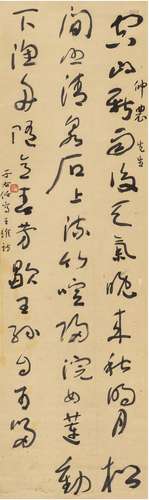 先生
空山新雨後天氣晚來秋明月松
間照清泉石上流竹喧歸浣女蓮動
下漁舟隨意春芳歇王孫自可留
于右任寫王維詩